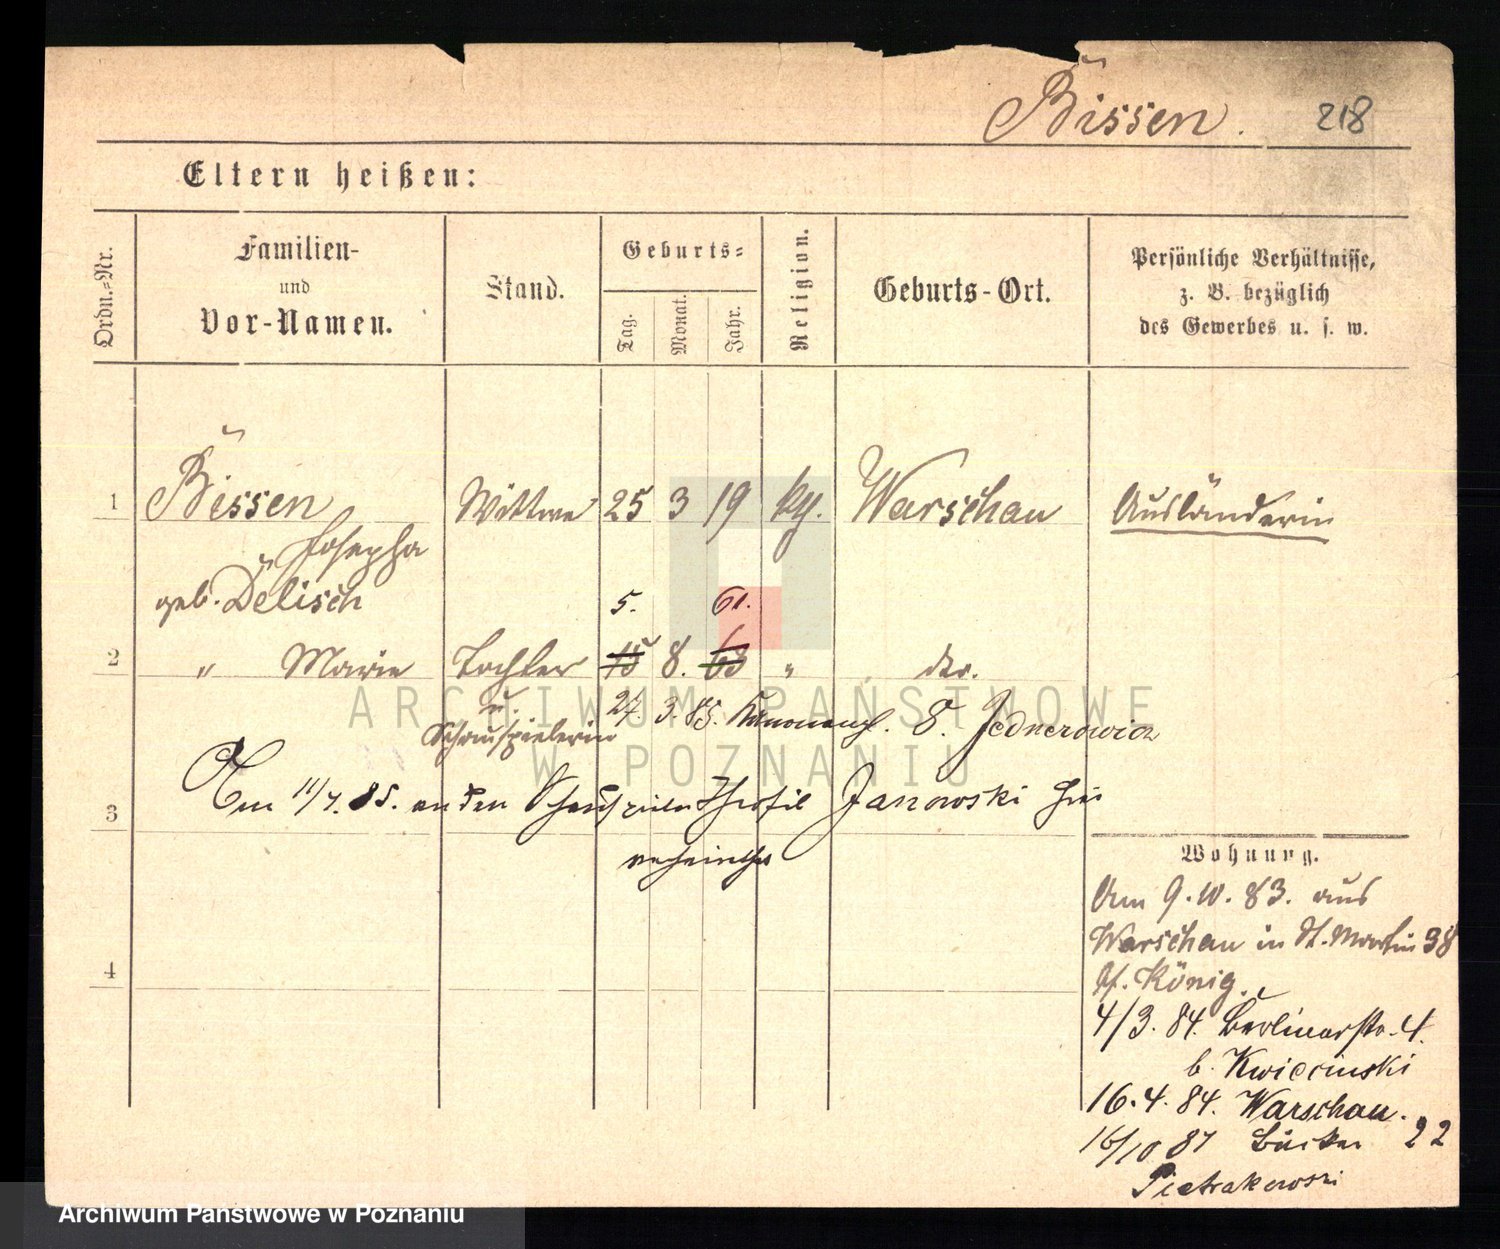 Bissen. 218
Eltern heißen:
Ordn.=Nr.
Familien-
und
Vor-Namen.
Stand.
Geburts=
Tag.
Monat.
Jahr.
Religion.
Geburts-Ort.
Persönliche Verhältnisse,
z. B. bezüglich
des Gewerbes u. s. w.
1 Bissen Wittwe 25 3 19 Warschau Ausländerin
Josepha
geb. Delisch 5. 61.
2 " Marie Tochter 15 8. 63 " dto.
u. 27. 3. 85. 8. Jednerowicz
Schauspielerin
Am 11/7. 85. an den Schauspieler Theofil Janowski hier
3
verheirathet
4
Wohnung.
Am 9. 10. 83. aus
Warschau in St. Martin 38
b. König.
4/3. 84. Berlinerstr. 4.
b. Kwiecinski
16. 4. 84. Warschau.
16/10 87 Bäcker 22
Pietrakowski
ARCHIWUM PAŃSTWOWE
W POZNANIU
Archiwum Państwowe w Poznaniu